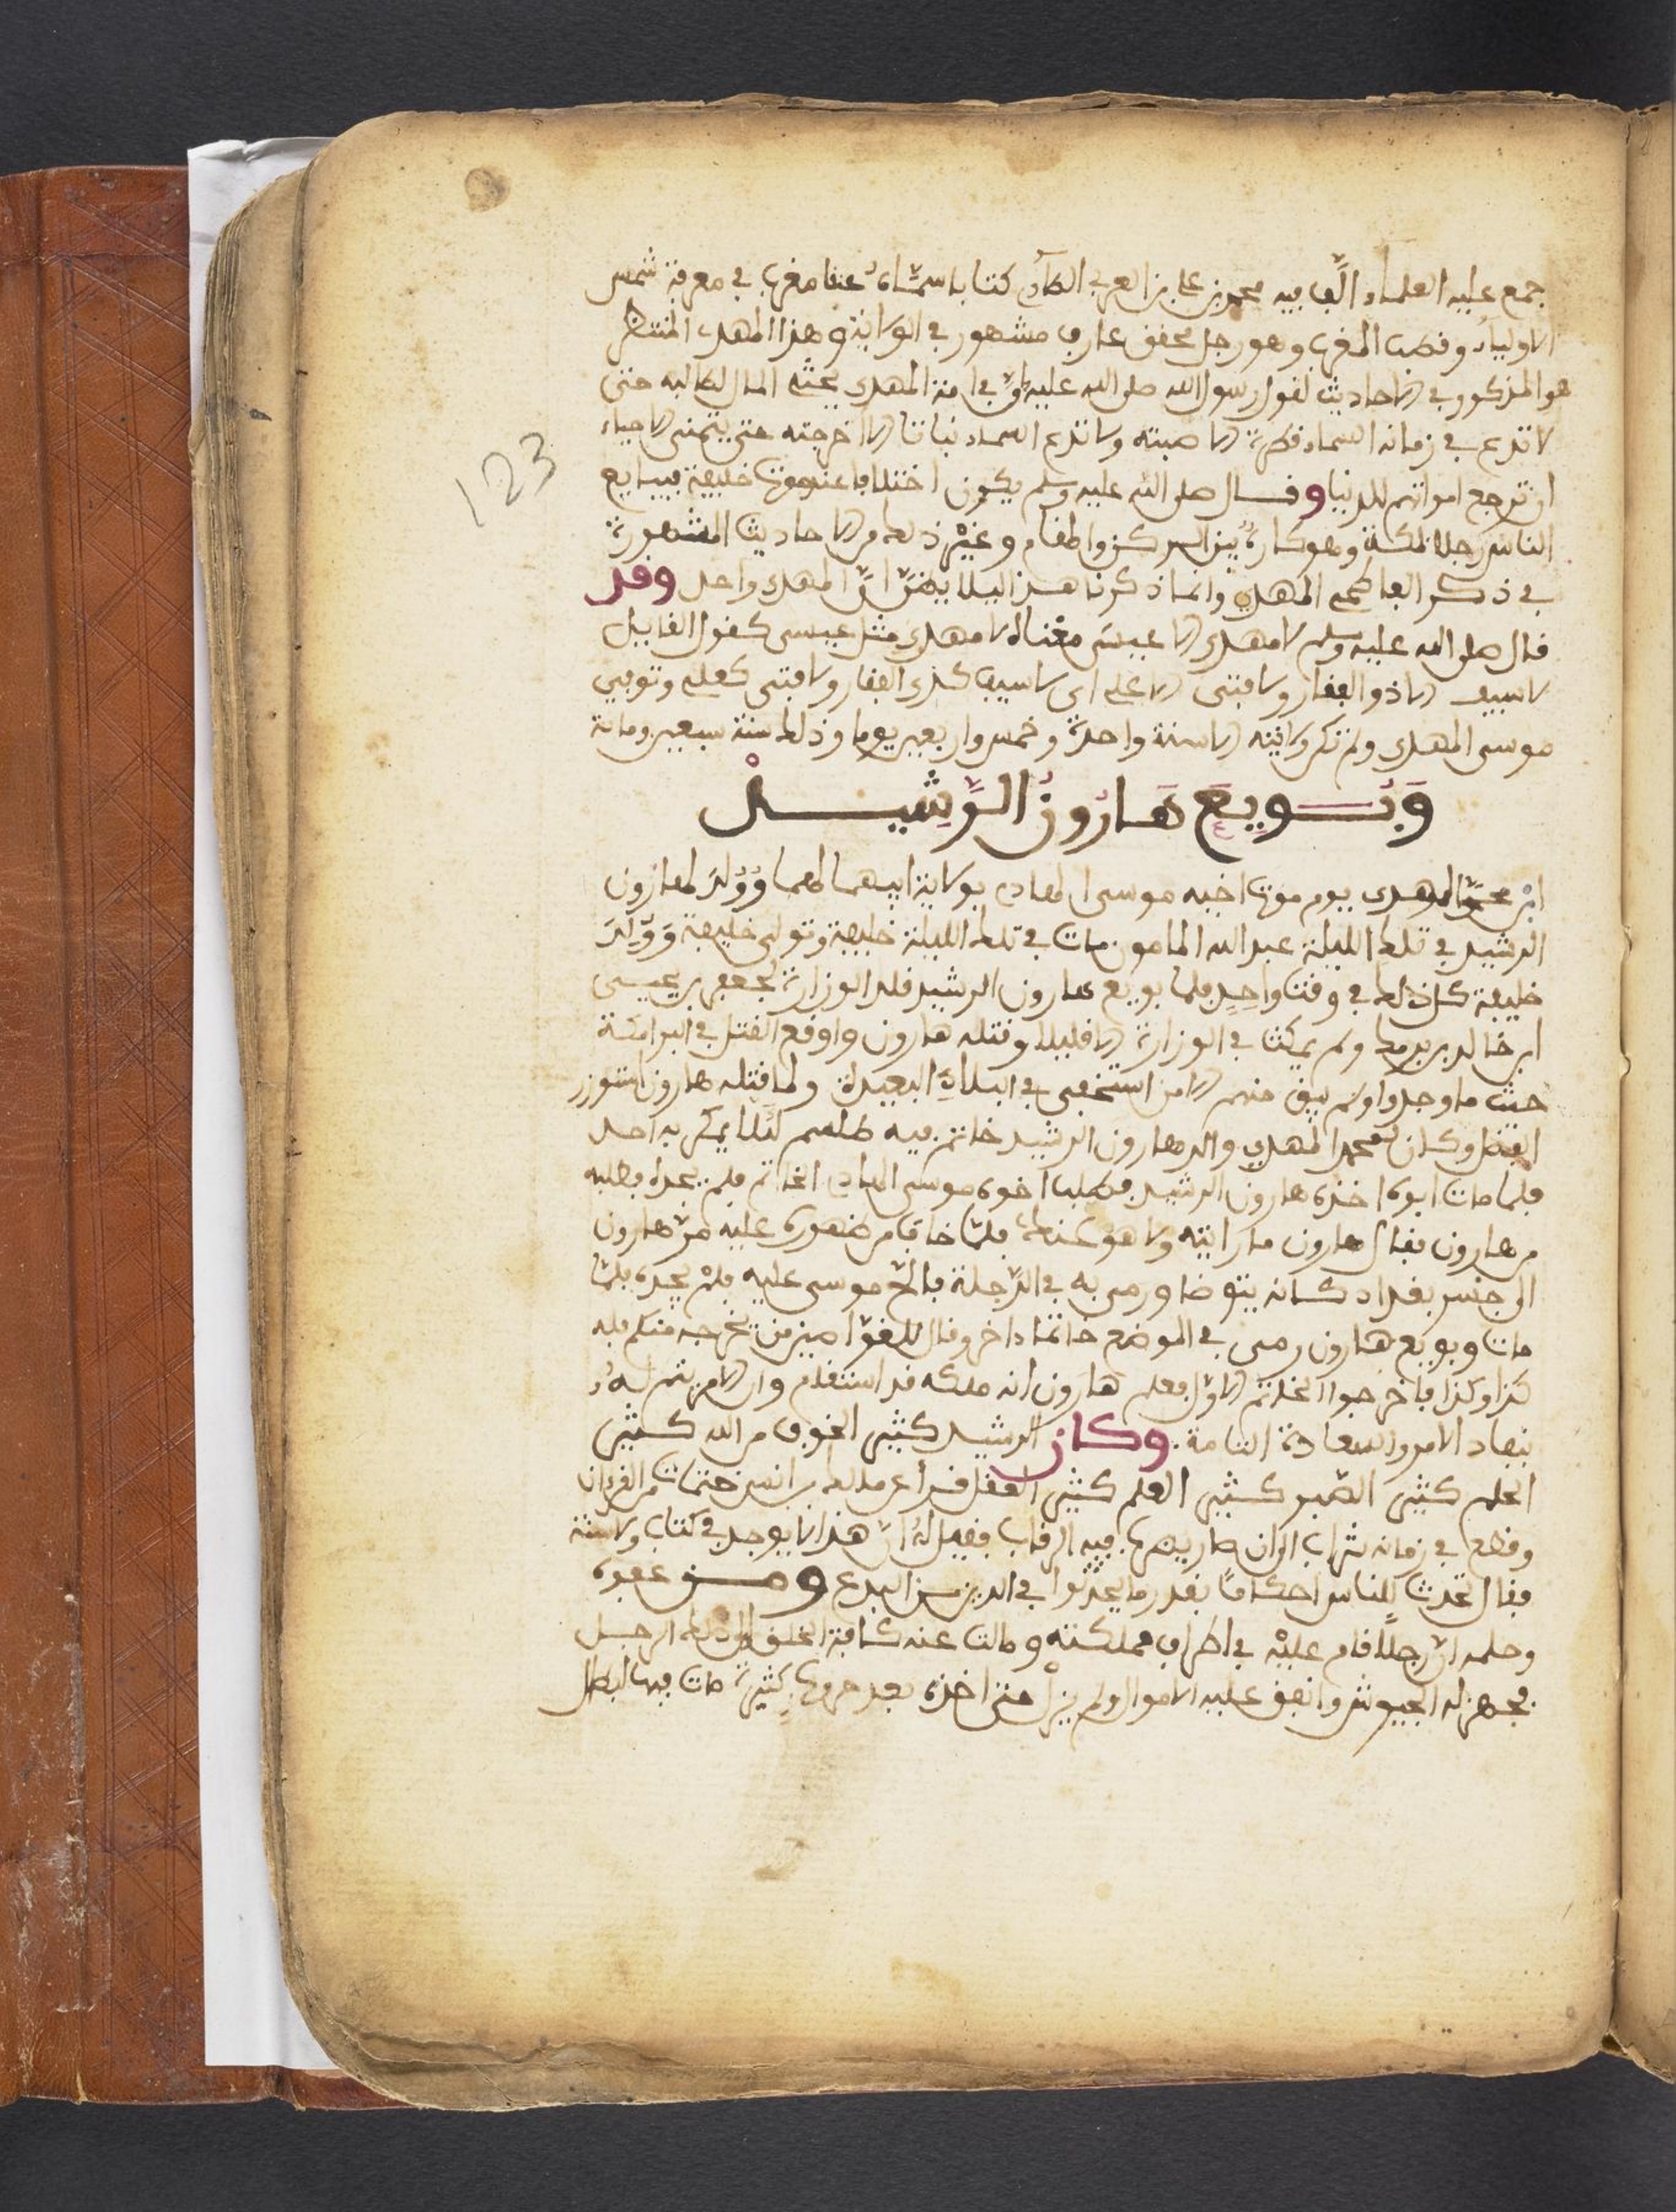 جمع عليه العلماء الّف فيه محمد بن علي بن العربي الطاءي كتابا سمّاه عنقا مغرب في معرفة شمس
الاولياء وختم المغرب وهو رجل محقق عارف مشهور في الولاية وهذا المهدي المنتظر
هو المذكور في الاحاديث لقول رسول الله صلى الله عليه في امة المهدي يحثه المال لطالبه حتى
لا تدع في زمانه السماء قطرة الا صبته ولا تدع السماء نباتا الا اخرجته حتى يتمنى الاحياء
ان ترجع امواتهم للدنيا وقال صلى الله عليه وسلم يكون اختلافا عند موت خليفة فيبايع
الناس رجلا بمكة وهو كاره بين الركن والمقام وغير ذلك من الاحاديث المشهورة
في ذكر الفاطمي المهدي وانما ذكرنا هذا ليلا يظن ان المهدي واحد وقد
قال صلى الله عليه وسلم لا مهدي الا عيسى معناه لا مهدي مثل عيسى كقول القايل
لا سيف الا ذو الفقار ولا فتى الا علي اى لا سيف كذي الفقار ولا فتى كعلي وتوفي
موسى المهدي ولم تكن ولايته الا سنة واحدة وخمس واربعين يوما وذلك سنة سبعين ومائة
وَبُويِعَ هَارُونُ الرَّشِيدْ
ابن محمد المهدي يوم موت اخيه موسى الهادي بولاية ابيهما لهما وَوُلِدَ لهارون
الرشيد في تلك الليلة عبد الله المامون مات في تلك الليلة خليفة وتولى خليفة وَوُلِدَ
خليفة كل ذلك في وقت واحد فلما بويع هارون الرشيد قلد الوزارة لجعفر بن يحيى
ابن خالد بن برمك ولم يمكث في الوزارة الا قليلا وقتله هارون واوقع القتل في البرامكة
حيث ما وجدوا ولم يبق منهم الا من استخفى في البلاد البعيدة ولما قتله هارون استوزر
الفضل وكان لمحمد المهدي والد هارون الرشيد خاتم فيه طلسم لئلا يمكر به احد
فلما مات ابوه اخذه هارون الرشيد فطلب اخوه موسى الهادي الخاتم فلم يجده فطلبه
من هارون فقال هارون ما رايته ولا هو عندي فلمّا خاف من ظهوره عليه مرّ هارون
الى جسر بغداد كانه يتوضا ورمى به في الدّجلة فالحّ موسى عليه فلم يجده فلمّا
مات وبويع هارون رمى في الموضع خاتما داخر وقال للغوّاصين من يخرجه منكم فله
كذا وكذا فاخرجوا الخاتم الاول فعلم هارون ان ملكه قد استقام وان الامر تم له
بنفاد الامر والسعادة التامة. وكان الرشيد كثير الخوف من الله كثير
الحلم كثير الصّبر كثير العلم كثير العقل قرأ على مالك بن انس ختمات من القرءان
وقطع في زمانه شراب الران صار يضرب فيه الرقاب فقيل له ان هذا لا يوجد في كتاب ولا سنة
فقال تحدث للناس احكاماً بقدر ما يحدثوا في الدين من البدع ومن عفوه
وحلمه انّ رجلاً قام عليْه في اطراف مملكته ومالت عنه كافة الخلق الى ذلك الرجل
فجهز له الجيوش وانفق عليه الاموال ولم يزل حتى اخذه بعد حروب كثيرة مات فيها ابطال
123